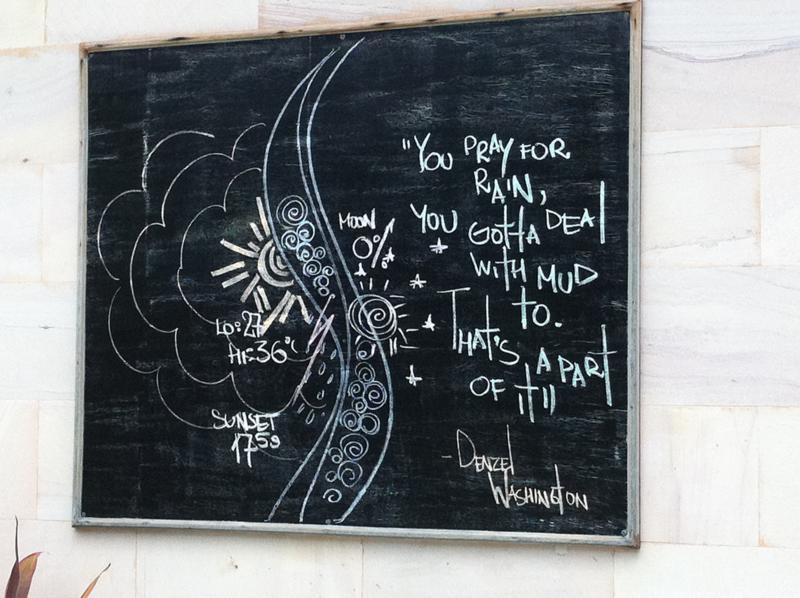 MOON
0%
LO: 27
HI: 36°C
SUNSET
17 59
"YOU PRAY FOR
RAIN,
YOU GOTTA DEAL
WITH MUD
TO.
THAT'S A PART
OF IT"
- DENZEL
WASHINGTON